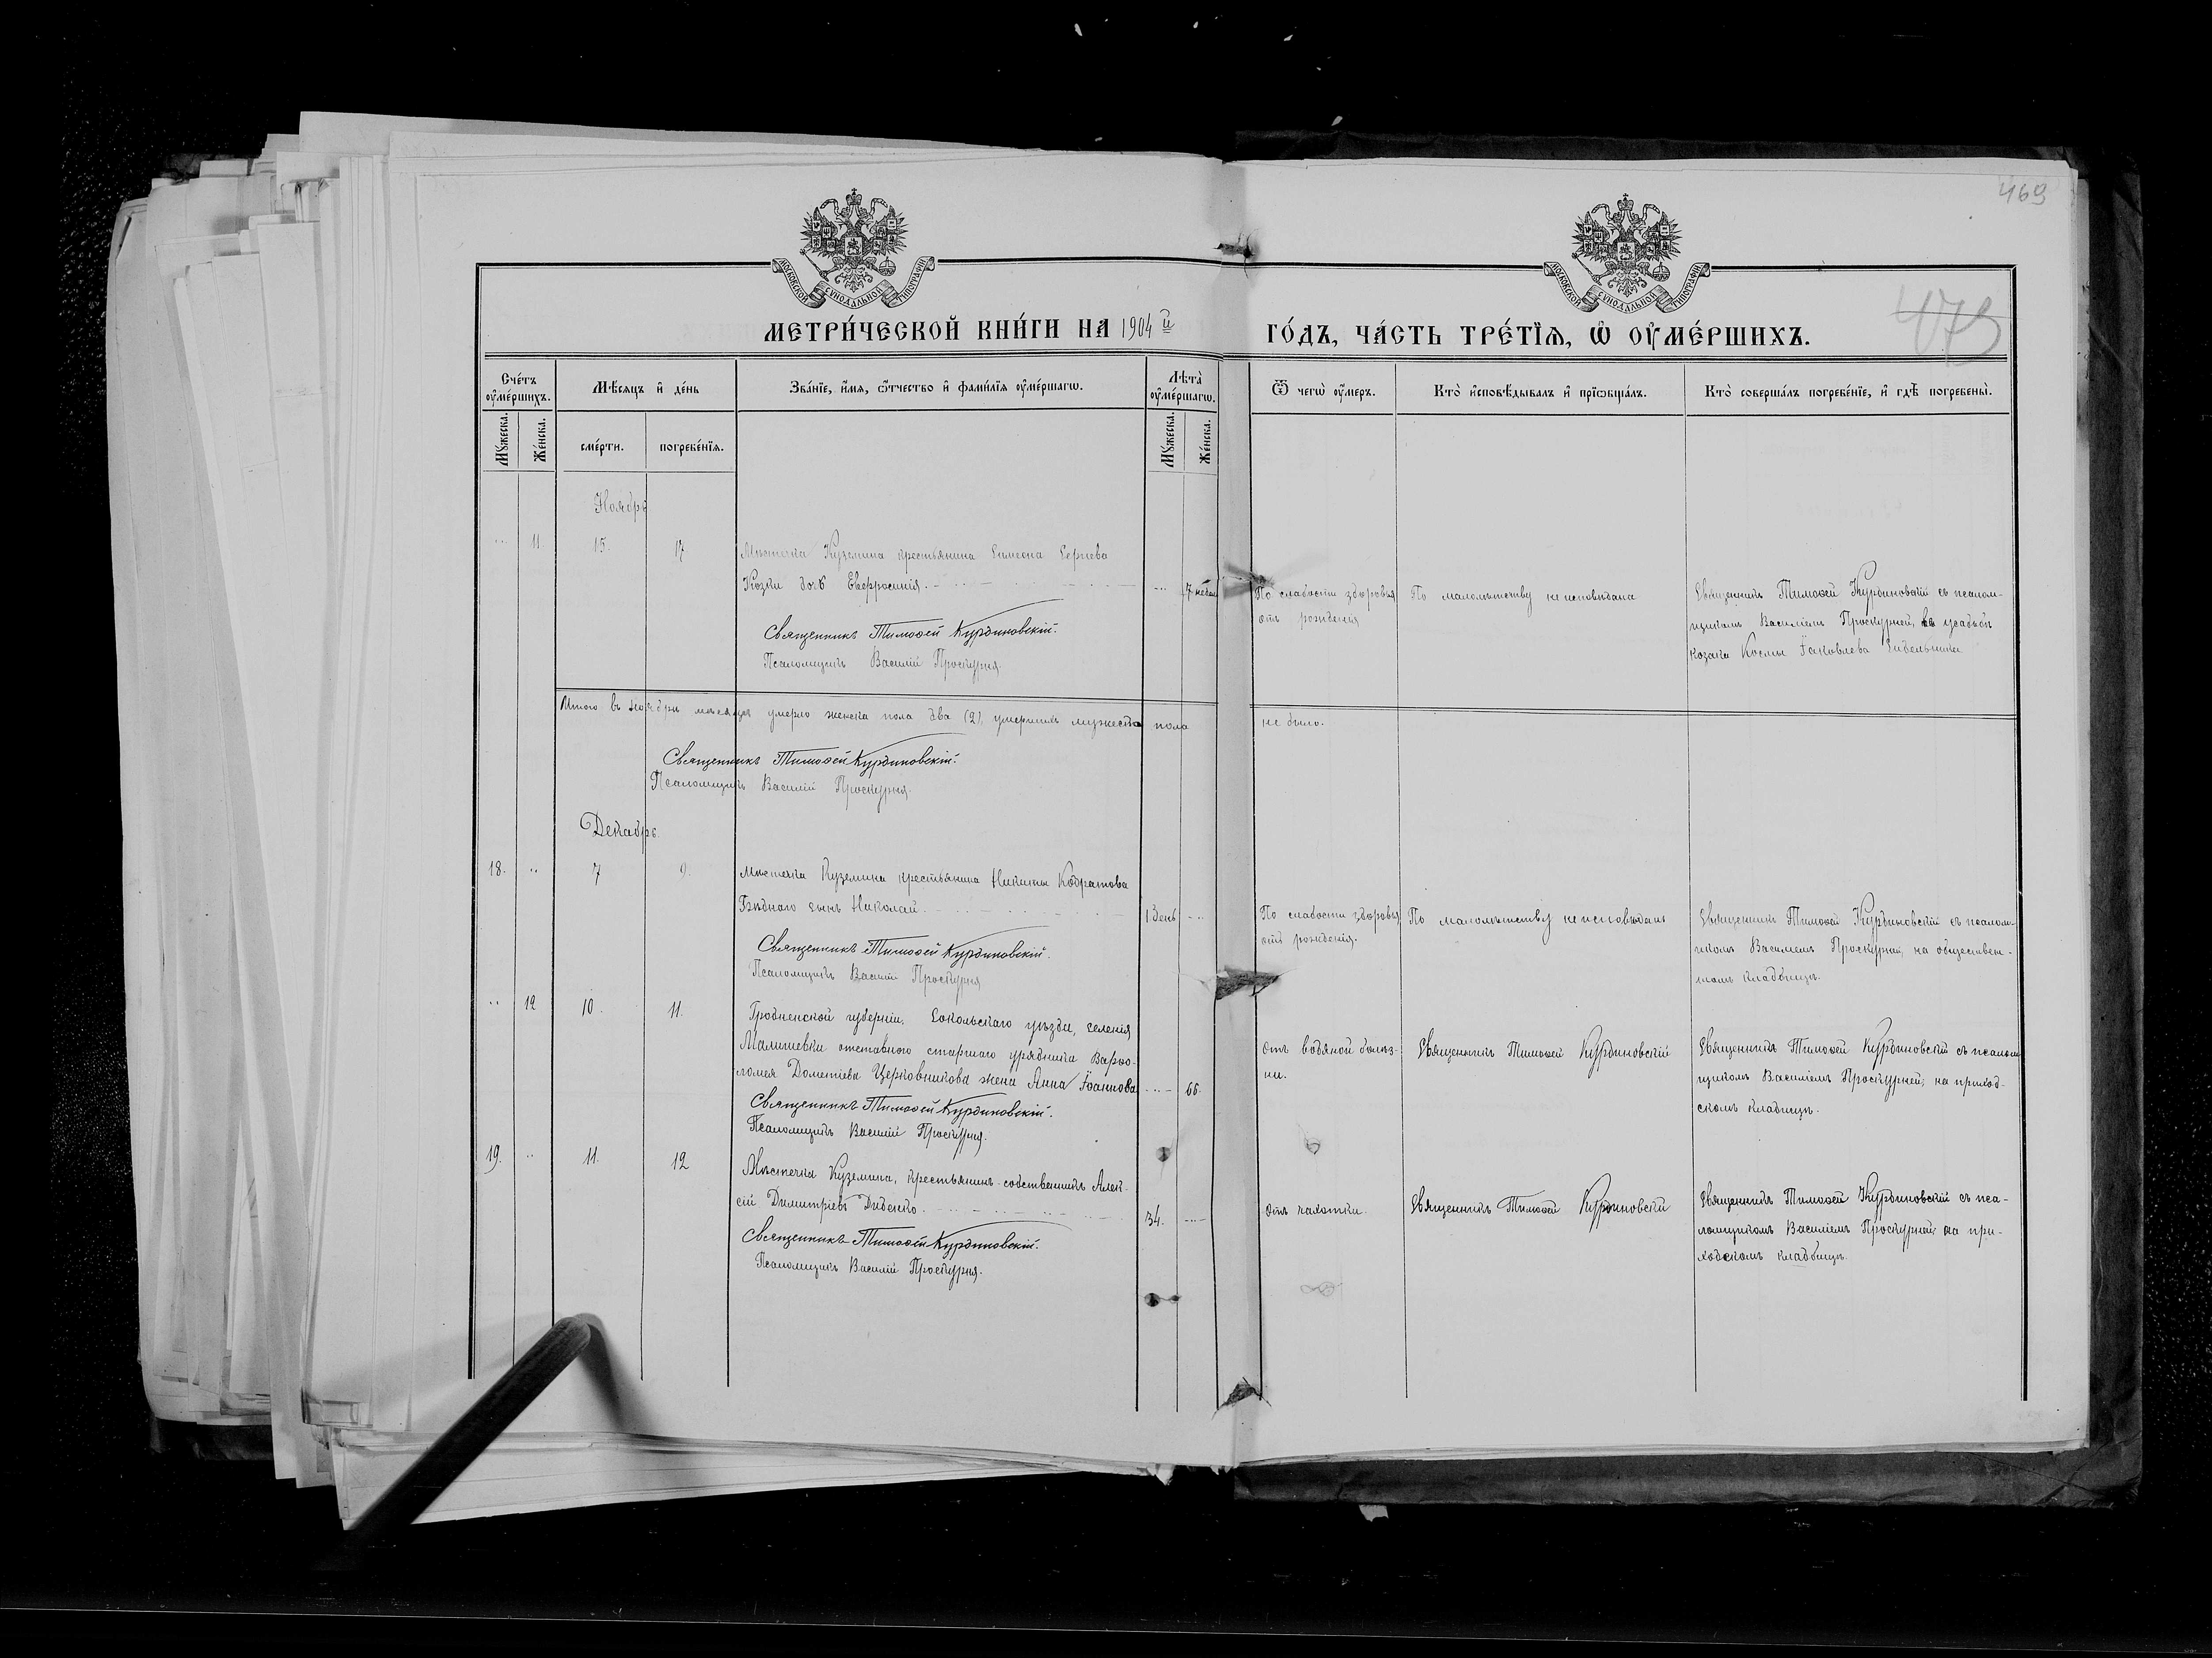 469
МОСКОВСКОЙ СУНОДАЛЬНОЙ ТИПОГРАФІИ
МОСКОВСКОЙ СУНОДАЛЬНОЙ ТИПОГРАФІИ
МЕТРИ́ЧЕСКОЙ КНИ́ГИ НА 1904й
ГО́ДЪ, ЧА́СТЬ ТРЕ́ТЇѦ, Ѡ҆ ОУ҆МЕ́РШИХЪ.
Сче́тъ оу҆ме́ршихъ.
Мꙋ́жеска.
Же́нска.
Мѣ́сѧцъ и҆ де́нь
сме́рти.
погребе́нїѧ.
Зва́нїе, и҆́мѧ, ѻ҆́тчество и҆ фами́лїѧ оу҆ме́ршагѡ.
Лѣ́та оу҆ме́ршагѡ.
Мꙋ́жеска.
Же́нска.
Ѿ чегѡ̀ оу҆́меръ.
Кто̀ и҆сповѣ́дывалъ и҆ прїѡбща́лъ.
Кто̀ соверша́лъ погребе́нїе, и҆ гдѣ̀ погребены̀.
Ноябрь
11. 15. 17 Мѣстечка Куземина крестьянина Симеона Сергіева
Козки дочь Евфросинія. 7 недѣль
Священникъ Тимоѳей Курдиновскій.
Псаломщикъ Василій Проскурня.
По слабости здоровья
отъ рожденія
По малолѣтству не исповѣдана
Священникъ Тимоѳей Курдиновскій съ псалом-
щикомъ Василіемъ Проскурней, въ усадьбѣ
козака Космы Іаковлева
Итого въ ноябрѣ мѣсяцѣ умерло женска пола два (2), умершихъ мужеска пола не было.
Священникъ Тимоѳей Курдиновскій.
Псаломщикъ Василій Проскурня.
Декабрь.
18. 7 9. Мѣстечка Куземина крестьянина Никиты Кодратова
сынъ Николай. 1 день
Священникъ Тимоѳей Курдиновскій.
Псаломщикъ Василій Проскурня
По слабости здоровья
отъ рожденія.
По малолѣтству не исповѣданъ
Священникъ Тимоѳей Курдиновскій съ псалом-
щикомъ Василіемъ Проскурней, на обществен-
номъ кладбищѣ.
12 10. 11. Гродненской губерніи, Сокольскаго уѣзда, селенія
Малишевки отставного старшаго урядника Варѳо-
ломея Дометіева Церковникова жена Анна Іоаннова 66.
Священникъ Тимоѳей Курдиновскій.
Псаломщикъ Василій Проскурня.
Отъ водяной болѣз-
ни.
Священникъ Тимоѳей Курдиновскій
Священникъ Тимоѳей Курдиновскій съ псалом-
щикомъ Василіемъ Проскурней, на приход-
скомъ кладбищѣ.
19. 11. 12 Мѣстечка Куземина, крестьянинъ-собственникъ Алек-
сій Димитріевъ Диденко. 34.
Священникъ Тимоѳей Курдиновскій.
Псаломщикъ Василій Проскурня.
Отъ чахотки.
Священникъ Тимоѳей Курдиновскій
Священникъ Тимоѳей Курдиновскій съ пса-
ломщикомъ Василіемъ Проскурней, на при-
ходскомъ кладбищѣ.